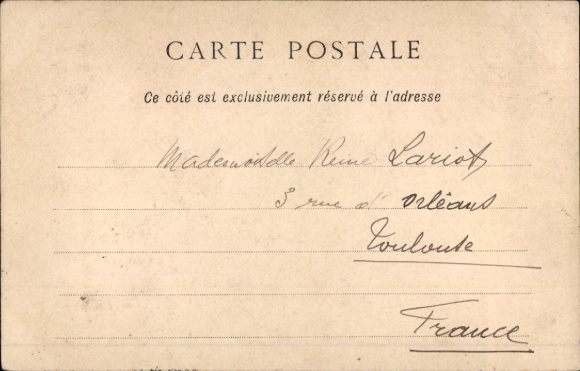 CARTE POSTALE
Ce côté est exclusivement réservé à l'adresse
Mademoiselle Reine Lariot
3 rue d'Orléans
Toulouse
France